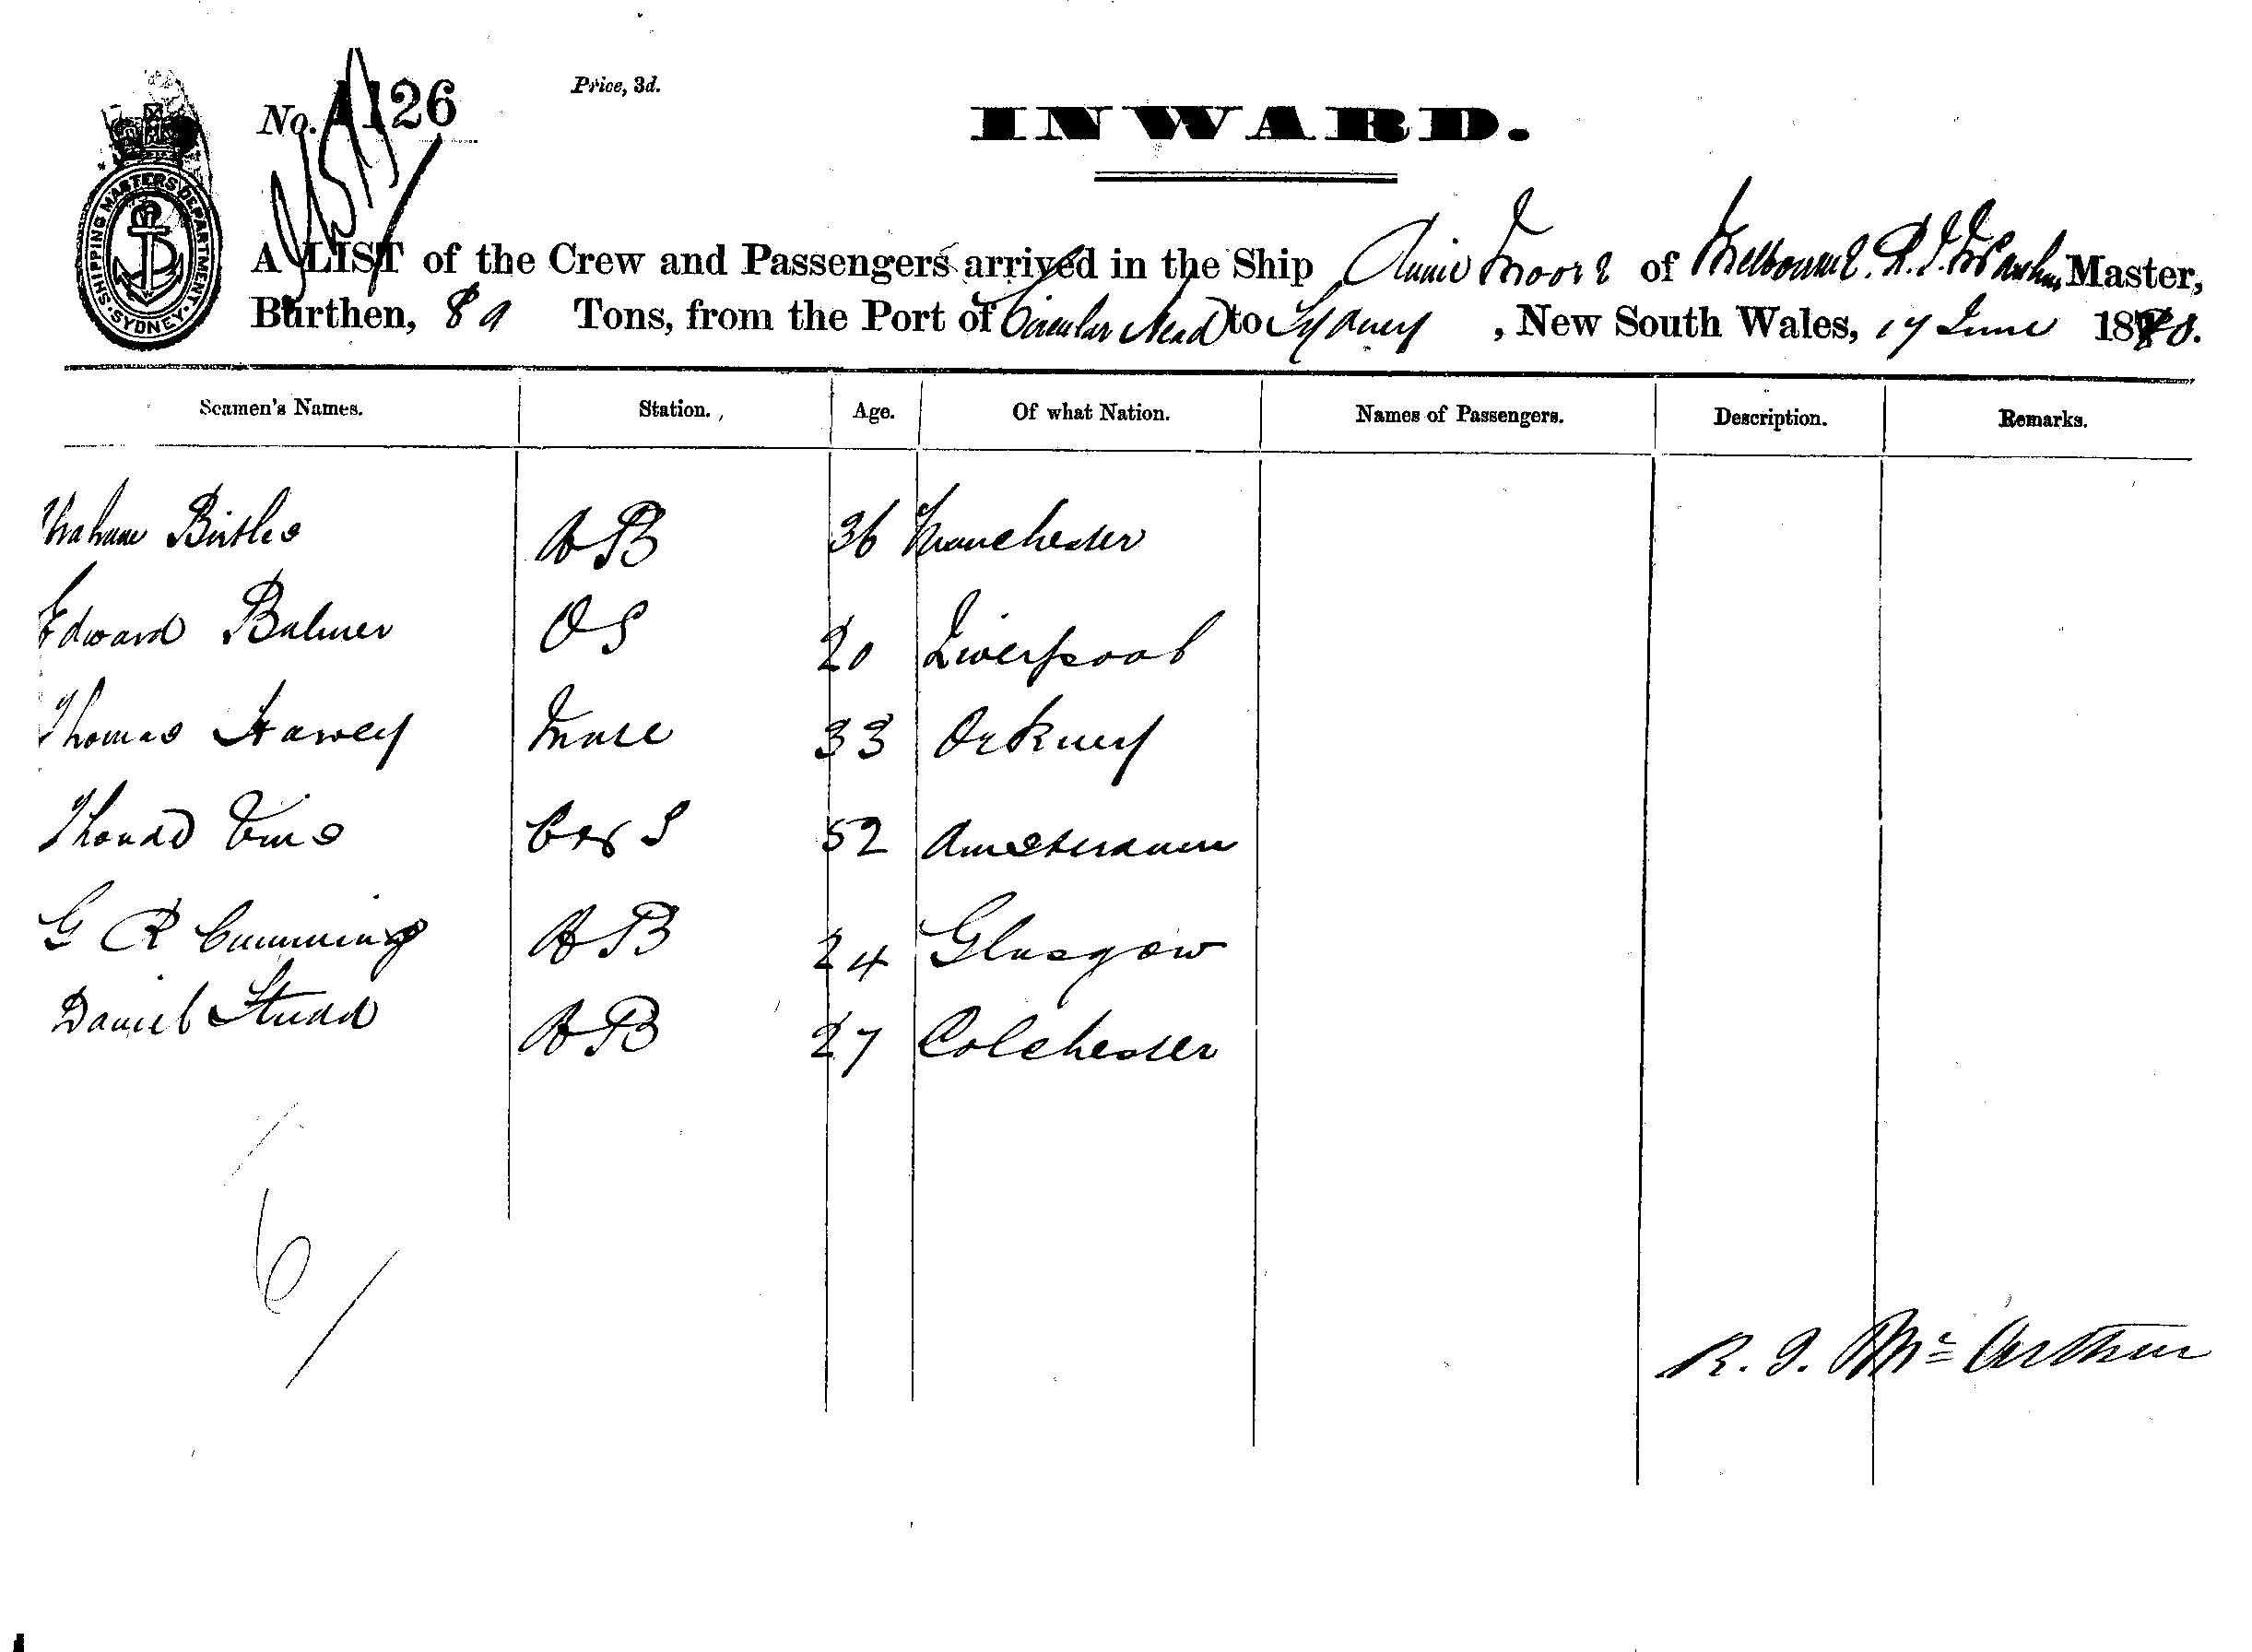 No. 1126
Price, 3d.
INWARD.
SHIPPING MASTERS DEPARTMENT
SYDNEY
A LIST of the Crew and Passengers arrived in the Ship Annie Moore of Melbourne. R. J. McArthur Master,
Burthen, 89 Tons, from the Port of Circular Head to Sydney, New South Wales, 17 June 1880.
Seamen's Names. Station. Age. Of what Nation. Names of Passengers. Description. Remarks.
Birtles AB 36 Manchester
Edward Bulmer OS 20 Liverpool
Thomas Harvey Mate 33 Orkney
52 Amsterdam
G R Cumming AB 24 Glasgow
Daniel Studd AB 27 Colchester
6
R. J. Mc Arthur